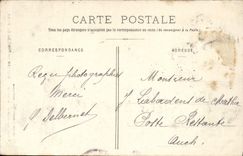 CARTE POSTALE
Tous les pays étrangers n'acceptent pas la correspondance au recto
(Se renseigner à la Poste)
CORRESPONDANCE
ADRESSE
Reçu photographies
Merci
Monsieur
J. Labadens de
Poste Restante
Auch